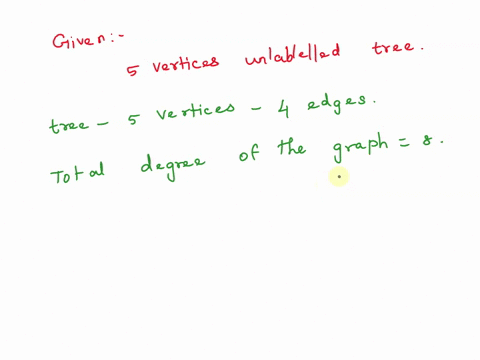 Given:-
5 vertices unlabelled tree.
tree - 5 vertices - 4 edges.
Total degree of the graph = 8.